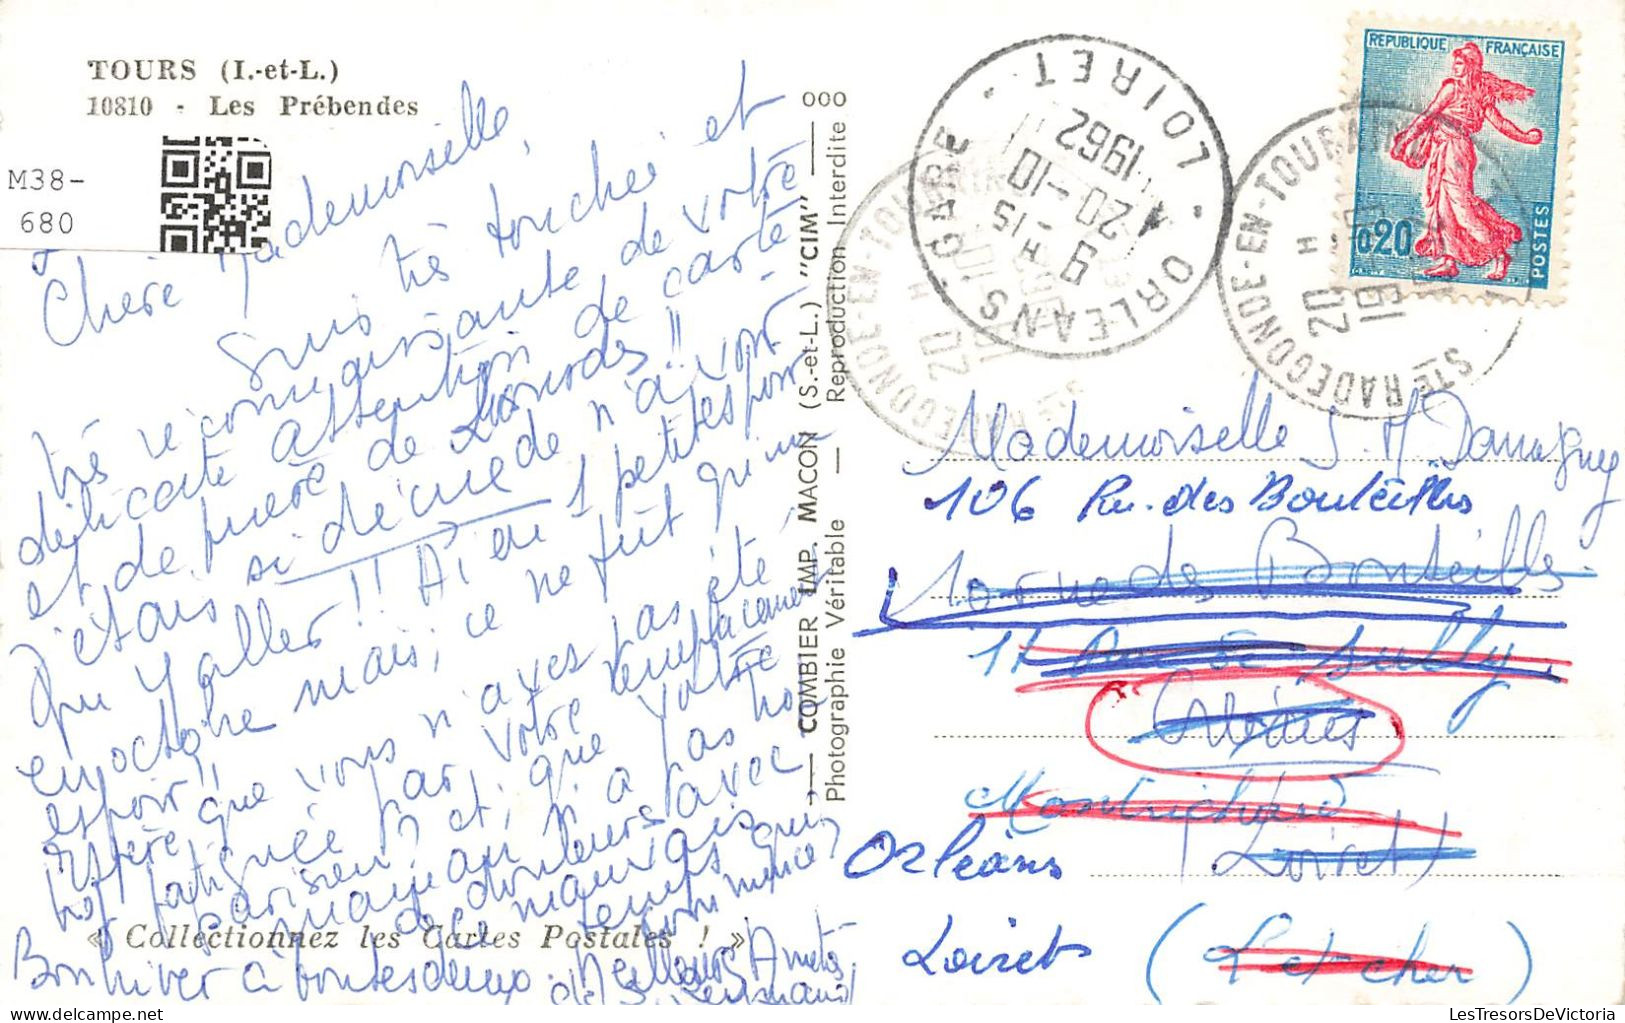 TOURS (I.-et-L.)
10810 - Les Prébendes
M38-
680
Chère Mademoiselle,
Suis très touchée et
très reconnaissante de votre
délicate attention de carte
et de prière de Lourdes !!
J'étais si démunie de n'avoir
pu y aller !! Ai eu 1 petit espoir
en octobre mais, ce ne fût qu'un
espoir !!
J'espère que vous n'avez pas été
trop fatiguée par votre remplacement
parisien ? et, que votre
maman n'a pas trop
de douleurs avec
ce mauvais
temps qui
commence ?
Bon hiver à toutes deux
Meilleures Amitiés
« Collectionnez les Cartes Postales ! »
COMBIER IMP. MACON (S.-et-L.) "CIM"
Photographie Véritable — Reproduction Interdite
000
ORLEANS GARE · LOIRET ·
9 H -15
20 -10
1962
STE RADEGONDE-EN-TOURAINE
20
STE RADEGONDE-EN-TOURAINE
20
REPUBLIQUE FRANÇAISE
0,20
POSTES
Mademoiselle
106 Rue des Bouteilles
rue des Bouteilles
17 Rue de Sully
Orléans
Montrichard
(Loiret)
Orléans
Loiret
(L et cher)
LesTresorsDeVictoria